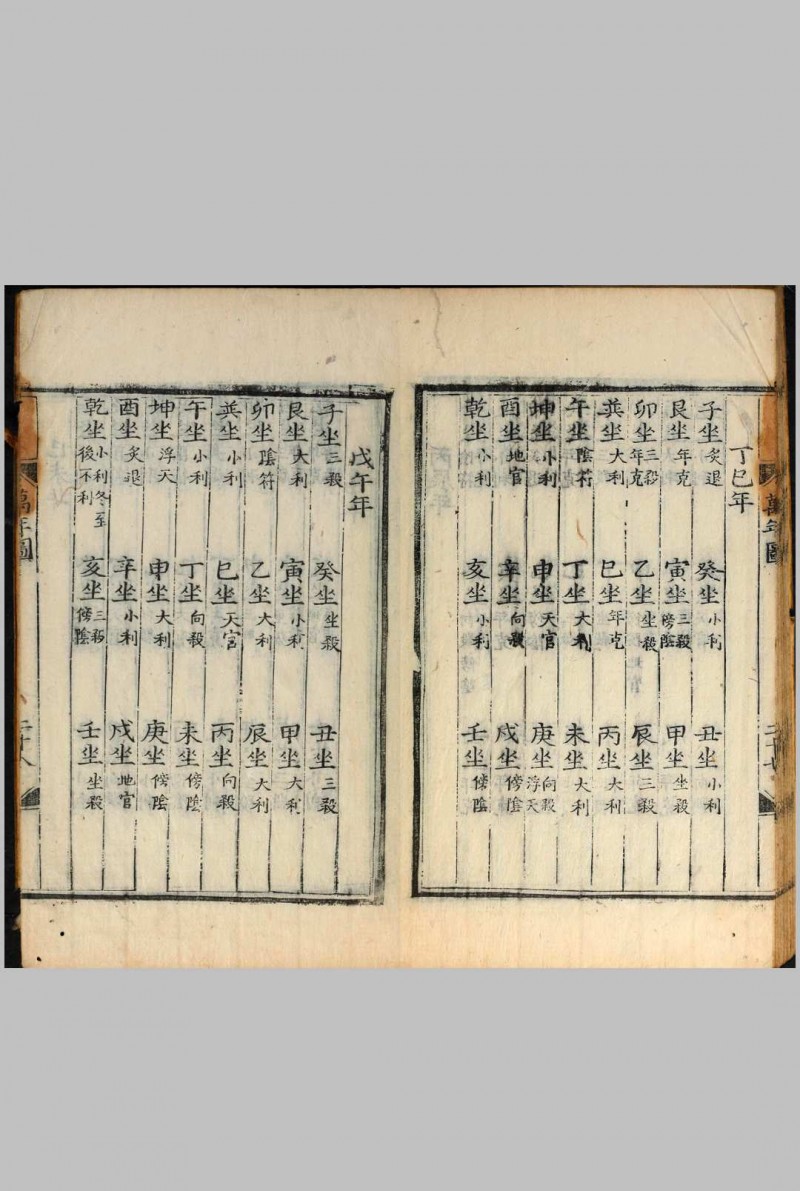 萬年圖
二十七
丁巳年
子坐 灸退 癸坐 小利 丑坐 小利
艮坐 年克 寅坐 三殺 傍陰 甲坐 坐殺
卯坐 三殺 年克 乙坐 坐殺 辰坐 三殺
巽坐 大利 巳坐 年克 丙坐 大利
午坐 陰符 丁坐 大利 未坐 大利
坤坐 小利 申坐 天官 庚坐 向殺 浮天
酉坐 地官 辛坐 向殺 戌坐 傍陰
乾坐 小利 亥坐 小利 壬坐 傍陰
戊午年
子坐 三殺 癸坐 坐殺 丑坐 三殺
艮坐 大利 寅坐 小利 甲坐 大利
卯坐 陰符 乙坐 大利 辰坐 大利
巽坐 小利 巳坐 天官 丙坐 向殺
午坐 小利 丁坐 向殺 未坐 傍陰
坤坐 浮天 申坐 大利 庚坐 傍陰
酉坐 灸退 辛坐 小利 戌坐 地官
乾坐 小利冬至 後不利 亥坐 三殺 傍陰 壬坐 坐殺
萬年圖
二十八